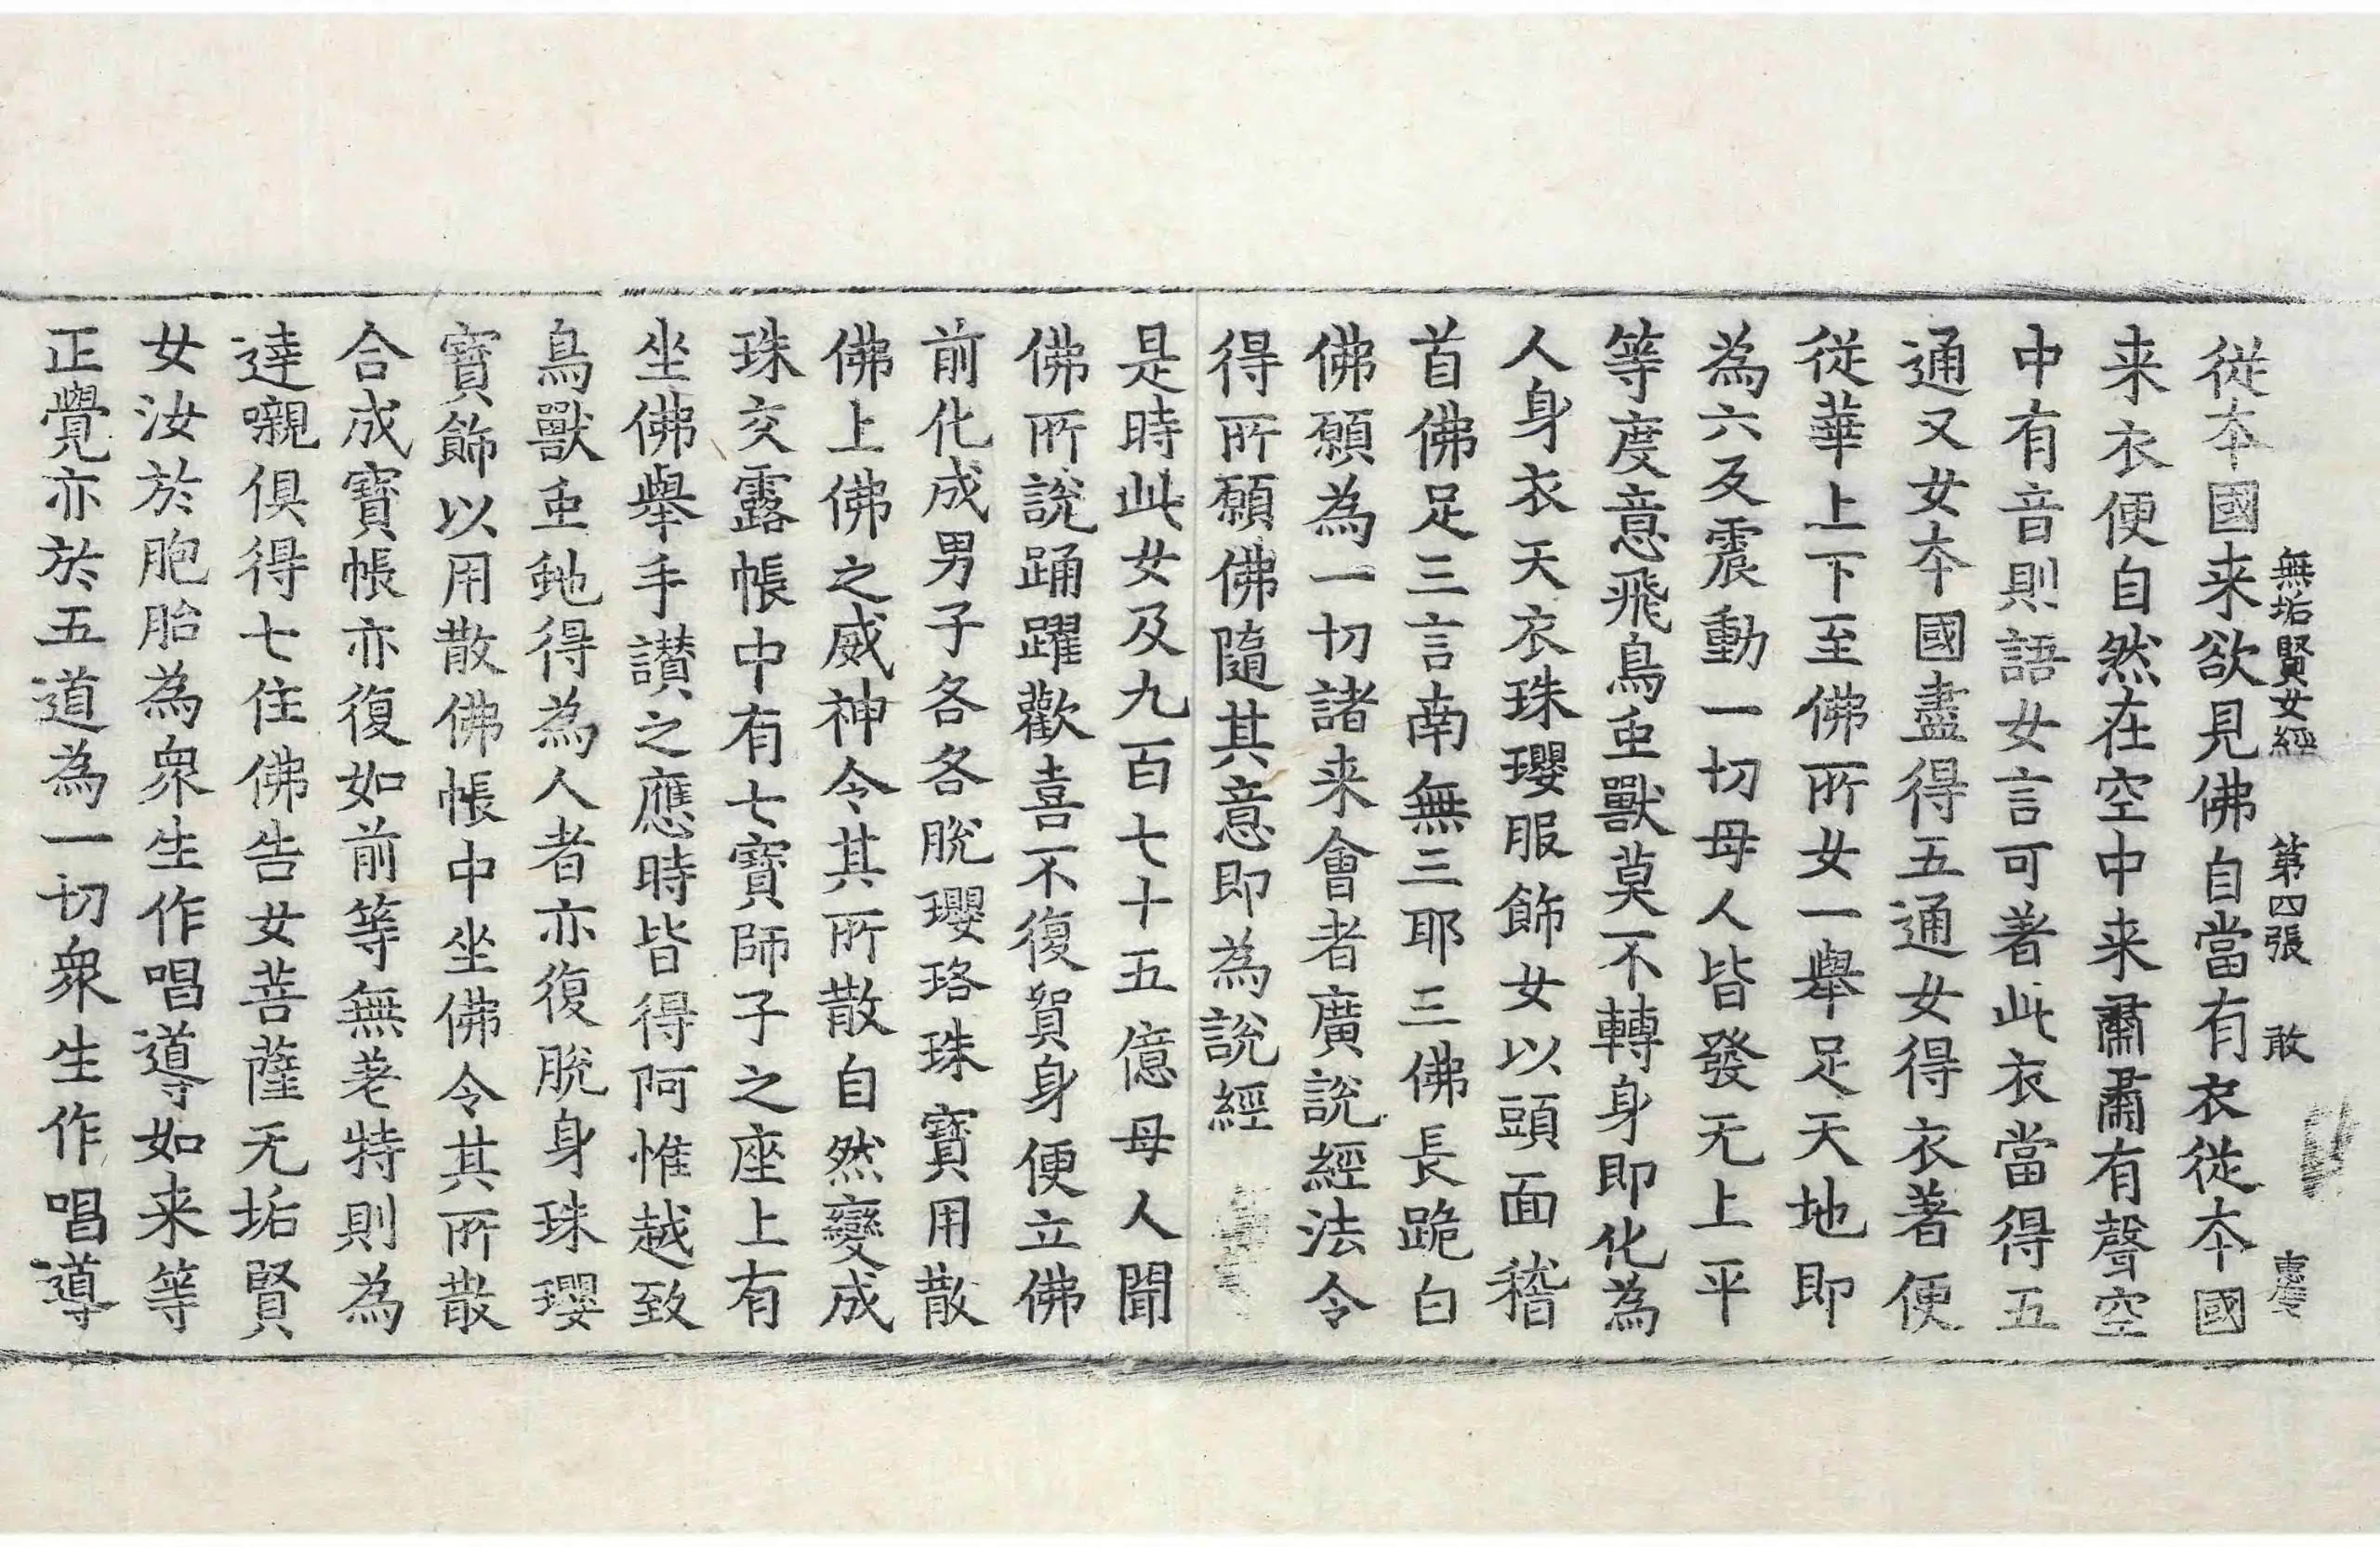 無垢賢女經 第四張 敢
從本國来欲見佛自當有衣從本國
来衣便自然在空中来肅肅有聲空
中有音則語女言可著此衣當得五
通又女本國盡得五通女得衣著便
從華上下至佛所女一舉足天地即
為六反震動一切母人皆發无上平
等度意飛鳥䖝獸莫不轉身即化為
人身衣天衣珠瓔服飾女以頭面稽
首佛足三言南無三耶三佛長跪白
佛願為一切諸来會者廣說經法令
得所願佛隨其意即為說經
是時此女及九百七十五億母人聞
佛所說踊躍歡喜不復賀身便立佛
前化成男子各各脫瓔珞珠寶用散
佛上佛之威神令其所散自然變成
珠交露帳中有七寶師子之座上有
坐佛舉手讃之應時皆得阿惟越致
鳥獸䖝虵得為人者亦復脫身珠瓔
寶飾以用散佛帳中坐佛令其所散
合成寶帳亦復如前等無差特則為
達嚫俱得七住佛告女菩薩无垢賢
女汝於胞胎為衆生作唱導如来等
正覺亦於五道為一切衆生作唱導